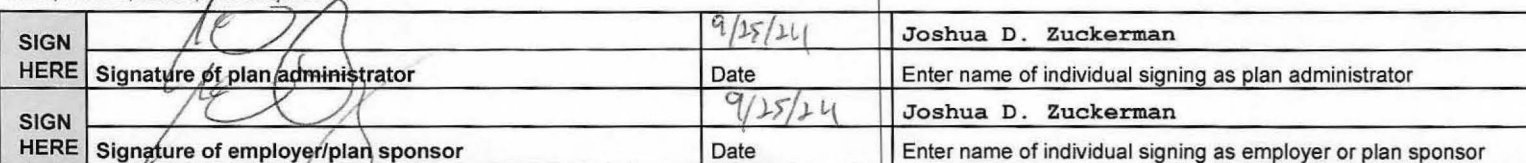 SIGN HERE
9/25/24 Joshua D. Zuckerman
Signature of plan administrator Date Enter name of individual signing as plan administrator
SIGN HERE
9/25/24 Joshua D. Zuckerman
Signature of employer/plan sponsor Date Enter name of individual signing as employer or plan sponsor